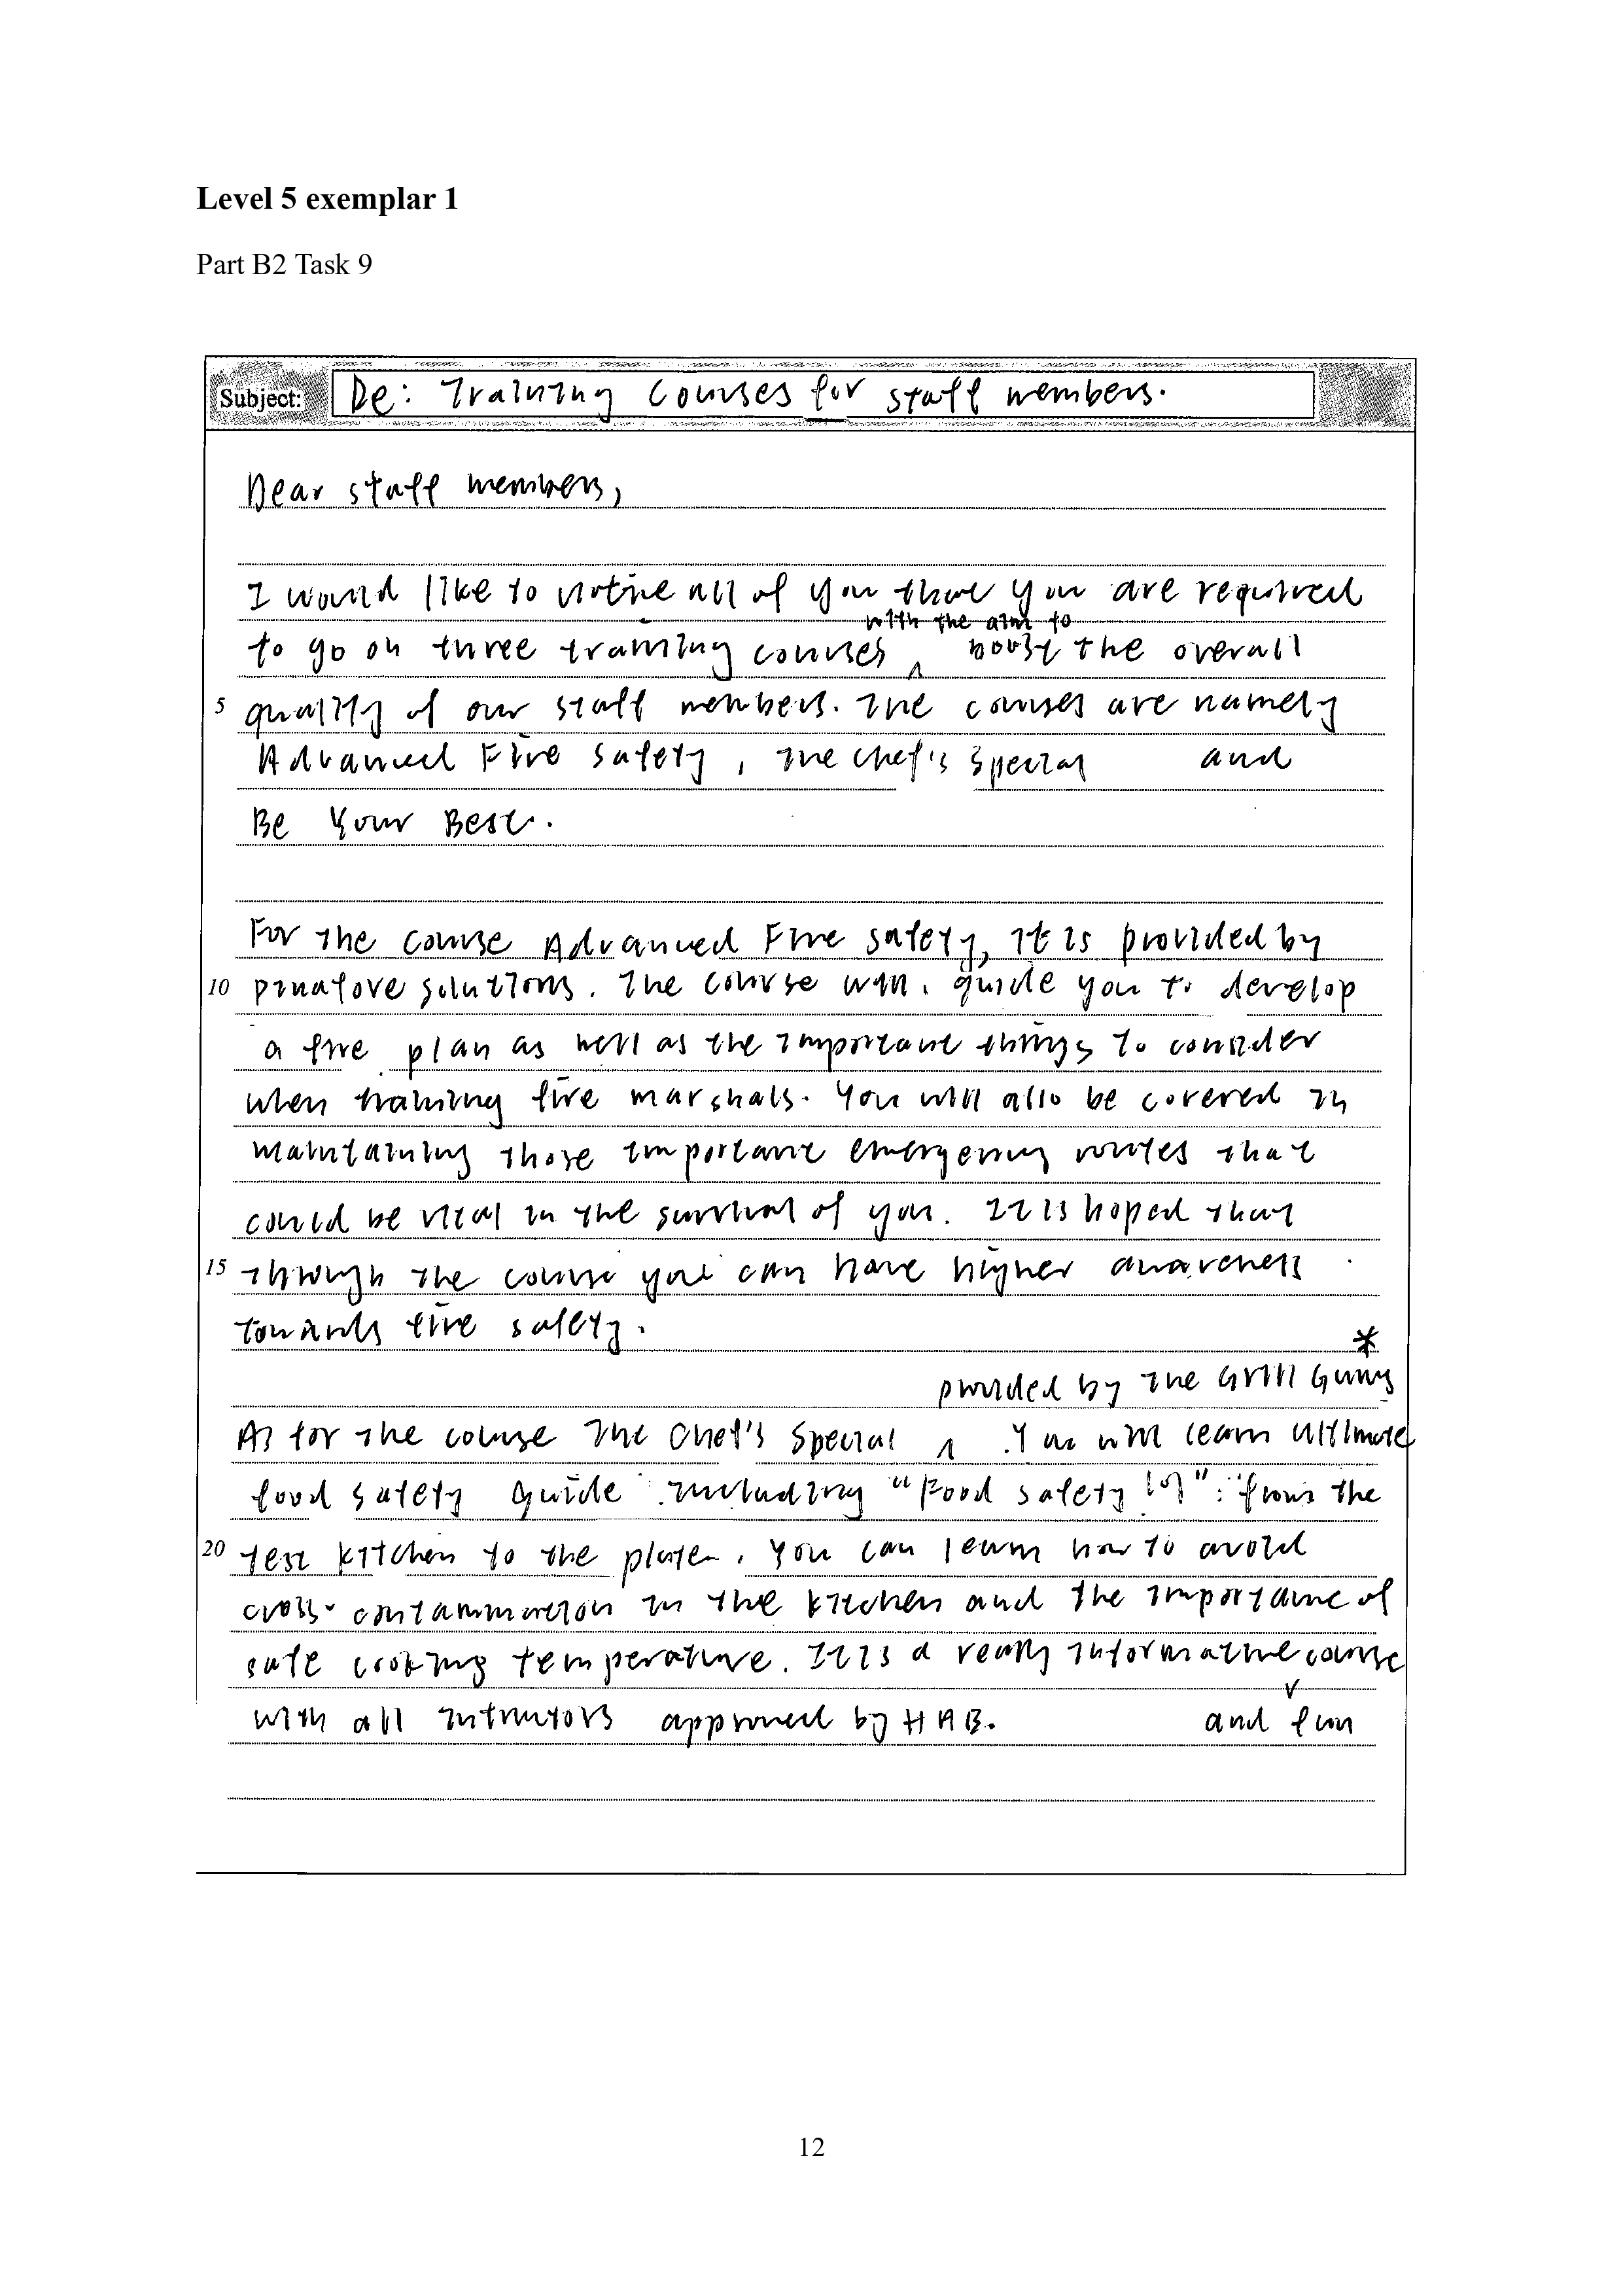 Level 5 exemplar 1
Part B2 Task 9
Subject: Re: Training Courses for staff members.
Dear staff members,
I would like to notice all of you that you are required
with the aim to
to go on three training courses ^ boost the overall
5 quality of our staff members. The courses are namely
Advanced Fire Safety, The Chef's Special and
Be Your Best.
For the course Advanced Fire Safety, it is provided by
10 Pinafore Solutions. The course will guide you to develop
a fire plan as well as the important things to consider
when training fire marshals. You will also be covered in
maintaining those important emergency routes that
could be vital in the survival of you. It is hoped that
15 through the course you can have higher awareness
towards fire safety.
*
provided by The Grill Gurus
As for the course The Chef's Special ^ . You will learn ultimate
food safety guide including "Food safety 101": from the
20 test kitchen to the plate. You can learn how to avoid
cross-contamination in the kitchen and the importance of
safe cooking temperature. It is a really informative course
with all intructors approved by HAB. and fun
12